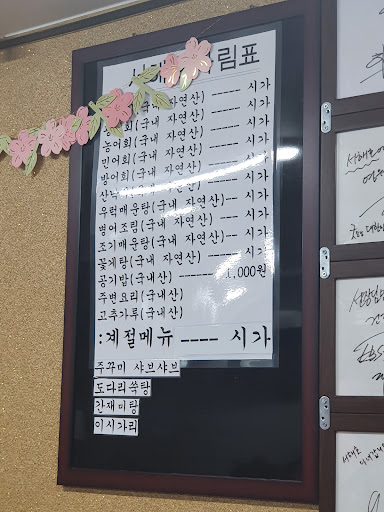 림표
(국내 자연산) ---- 시가
회(국내 자연산) ---- 시가
농어회(국내 자연산) ---- 시가
민어회(국내 자연산) ---- 시가
방어회(국내 자연산) ---- 시가
산낙(국내 자연산) ---- 시가
우럭매운탕(국내 자연산) --- 시가
병어조림(국내 자연산) ---- 시가
조기매운탕(국내 자연산) -- 시가
꽃게탕(국내 자연산) ---- 시가
공기밥(국내산) -------- 1,000원
주변요리(국내산)
고추가루(국내산)
:계절메뉴 ---- 시가
주꾸미 샤브샤브
도다리쑥탕
간재미탕
이시가리